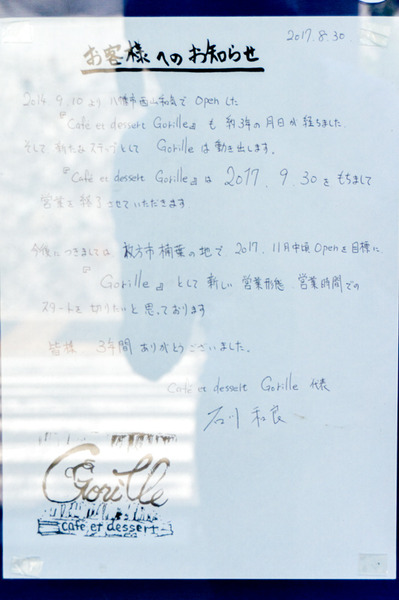 2017.8.30
お客様へのお知らせ
2014.9.10より八幡市西山和気でOpenした
『Café et dessert Gorille』も約3年の月日が経ちました。
そして新たなステップとしてGorilleは動き出します。
『Café et dessert Gorille』は2017.9.30をもちまして
営業を終了させていただきます
今後につきましては枚方市楠葉の地で2017.11月中頃Openを目標に
『Gorille』として新しい営業形態、営業時間での
スタートを切りたいと思っております
皆様 3年間ありがとうございました。
Café et dessert Gorille 代表
石川 和良
Gorille
café et dessert